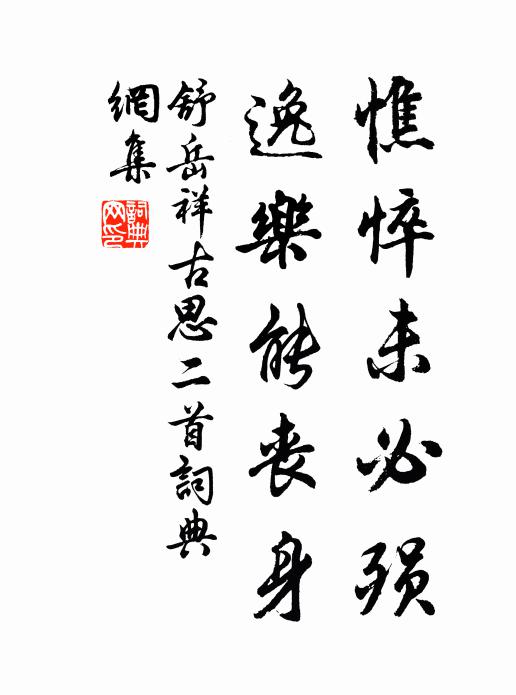 憔悴未必殞
逸樂能丧身
舒岳祥古思二首詞典
網集
詞典網印